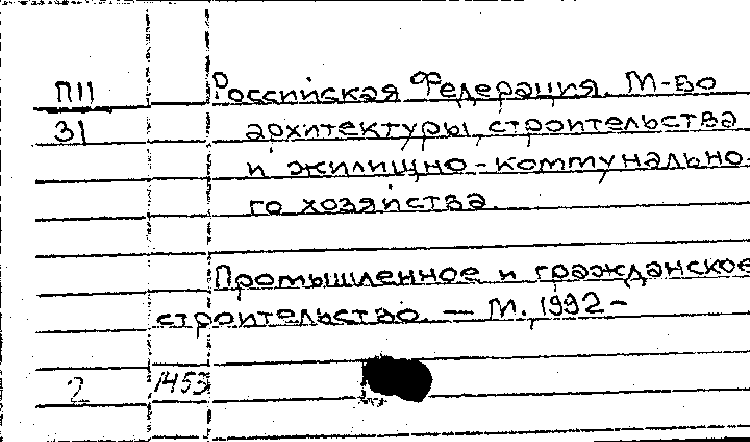 П11 Российская Федерация. М-во
31 архитектуры, строительства
и жилищно-коммунально-
го хозяйства.
Промышленное и гражданское
строительство. — М., 1992 –
2 1453